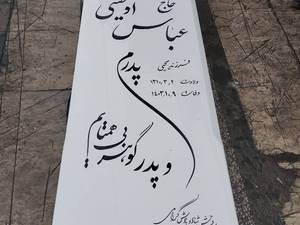 حاج
عباس اویسی
فرزند یحیی
ولادت ۱۳۱۰.۳.۲
وفات ۱۴۰۳.۱.۹
پدرم
گوهر بی همتایم
و پدر